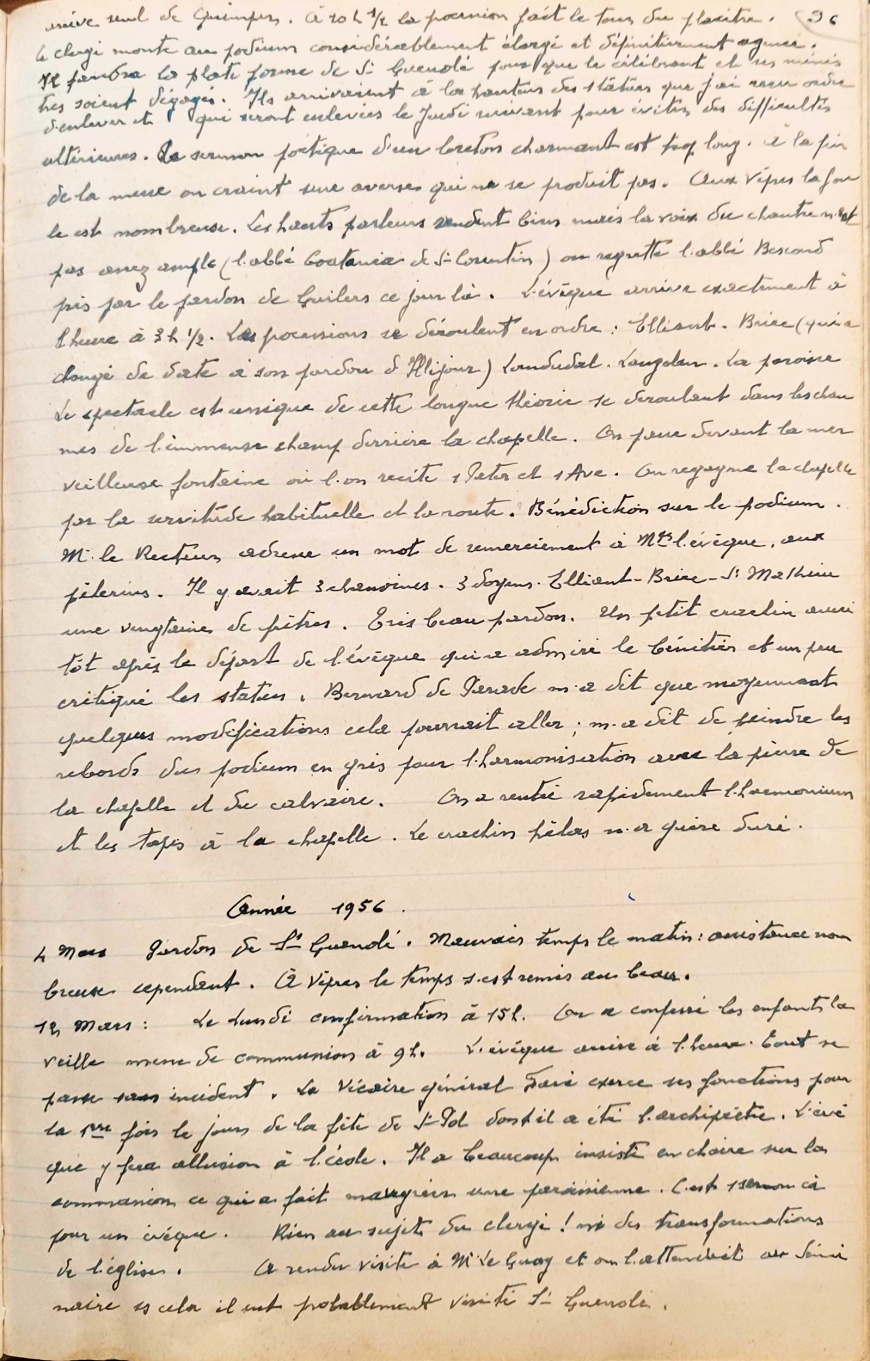 arrive seul de Quimper. À 10 h ½ la procession fait le tour du placître. 96
le clergé monte au podium considérablement élargi et définitivement agencé.
Il faudra la plate forme de St Guenolé pour que le célébrant et ses minis
tres soient dégagés. Ils arrivaient à la hauteur des statues que j'ai reçu ordre
d'enlever et qui seront enlevées le Jeudi suivant pour éviter des difficultés
ultérieures. Le sermon poétique d'un breton charmant est trop long. À la fin
de la messe on craint une averse qui ne se produit pas. Aux Vêpres la fou
le est nombreuse. Les hauts parleurs rendent bien mais la voix du chantre n'est
pas assez ample (l'abbé Coatanéa de St Corentin) on regrette l'abbé Bescond
pris par le pardon de Guilers ce jour là. L'évêque arrive exactement à
l'heure à 3 h ½. Les processions se déroulent en ordre : Elliant. Briec (qui a
changé de date à son pardon d'Illijour) Landudal. Langolen. La paroisse
Le spectacle est unique de cette longue théorie se déroulant dans les chau
mes de l'immense champ derrière la chapelle. On passe devant la mer
veilleuse fontaine où l'on récite 1 Pater et 1 Ave. On regagne la chapelle
par la servitude habituelle et la route. Bénédiction sur le podium.
M. le Recteur adresse un mot de remerciement à Mgr l'évêque, aux
pèlerins. Il y avait 3 chanoines. 3 doyens. Elliant - Briec - St Mathieu
une vingtaine de prêtres. Très beau pardon. Un petit crachin aussi
tôt après le départ de l'évêque qui a admiré le bénitier et un peu
critiqué les statues. Bernard de Parade m'a dit que moyennant
quelques modifications cela pourrait aller ; m'a dit de peindre les
rebords du podium en gris pour l'harmonisation avec la pierre de
la chapelle et du calvaire. On a rentré rapidement l'harmonium
et les tapis à la chapelle. Le crachin hélas n'a guère duré.
Année 1956.
4 Mars Pardon de St Guenolé. Mauvais temps le matin : assistance nom
breuse cependant. À Vêpres le temps s'est remis au beau.
12 Mars : Le Lundi confirmation à 15h. On a confessé les enfants la
veille messe de communion à 9h. L'évêque arrive à l'heure. Tout se
passe sans incident. Le Vicaire général Favé exerce ses fonctions pour
la 1ère fois le jour de la fête de St Pol dont il a été l'archiprêtre. L'évê
que y fera allusion à l'école. Il a beaucoup insisté en chaire sur la
communion ce qui a fait maugréer une paroissienne. C'est 1 sermon ça
pour un évêque. Rien au sujet du clergé ! ni des transformations
de l'église. A rendu visite à Mr Le Guay et on l'attendait au Sémi
naire ss cela il eut probablement visité St Guenolé.